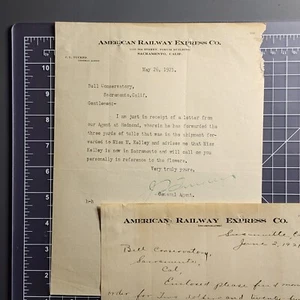 AMERICAN RAILWAY EXPRESS CO.
SACRAMENTO, CALIF.
May 26, 1921.
Bell Conservatory,
Sacramento, Calif.
Gentlemen:-
I am just in receipt of a Letter from
our Agent at Oakland, wherein he has forwarded the
three pieces of that was in the shipment for-
warded to Miss M. Kelley and advises me that Miss
Kelley is now in Sacramento and will call on you
personally in reference to the flowers.
Very truly yours,
General Agent.
AMERICAN RAILWAY EXPRESS CO.
Sacramento,
June 2, 192
Bell Conservatory,
Sacramento,
Cal,
Enclosed please find
order for Two